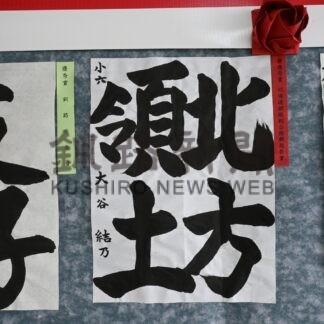 北方
領土
小六
大谷 結乃
優秀賞 釧路
釧路新聞
KUSHIRO NEWS WEB
子